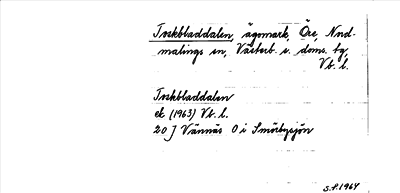 Torkbladdalen, ägomark, Öre, Nord-
malings sn, Västerb. s. doms. tg,
Vb. l.
Torkbladdalen
ek (1963) Vb. l.
20 J Vännäs O i Smörbysjön
S.F. 1964